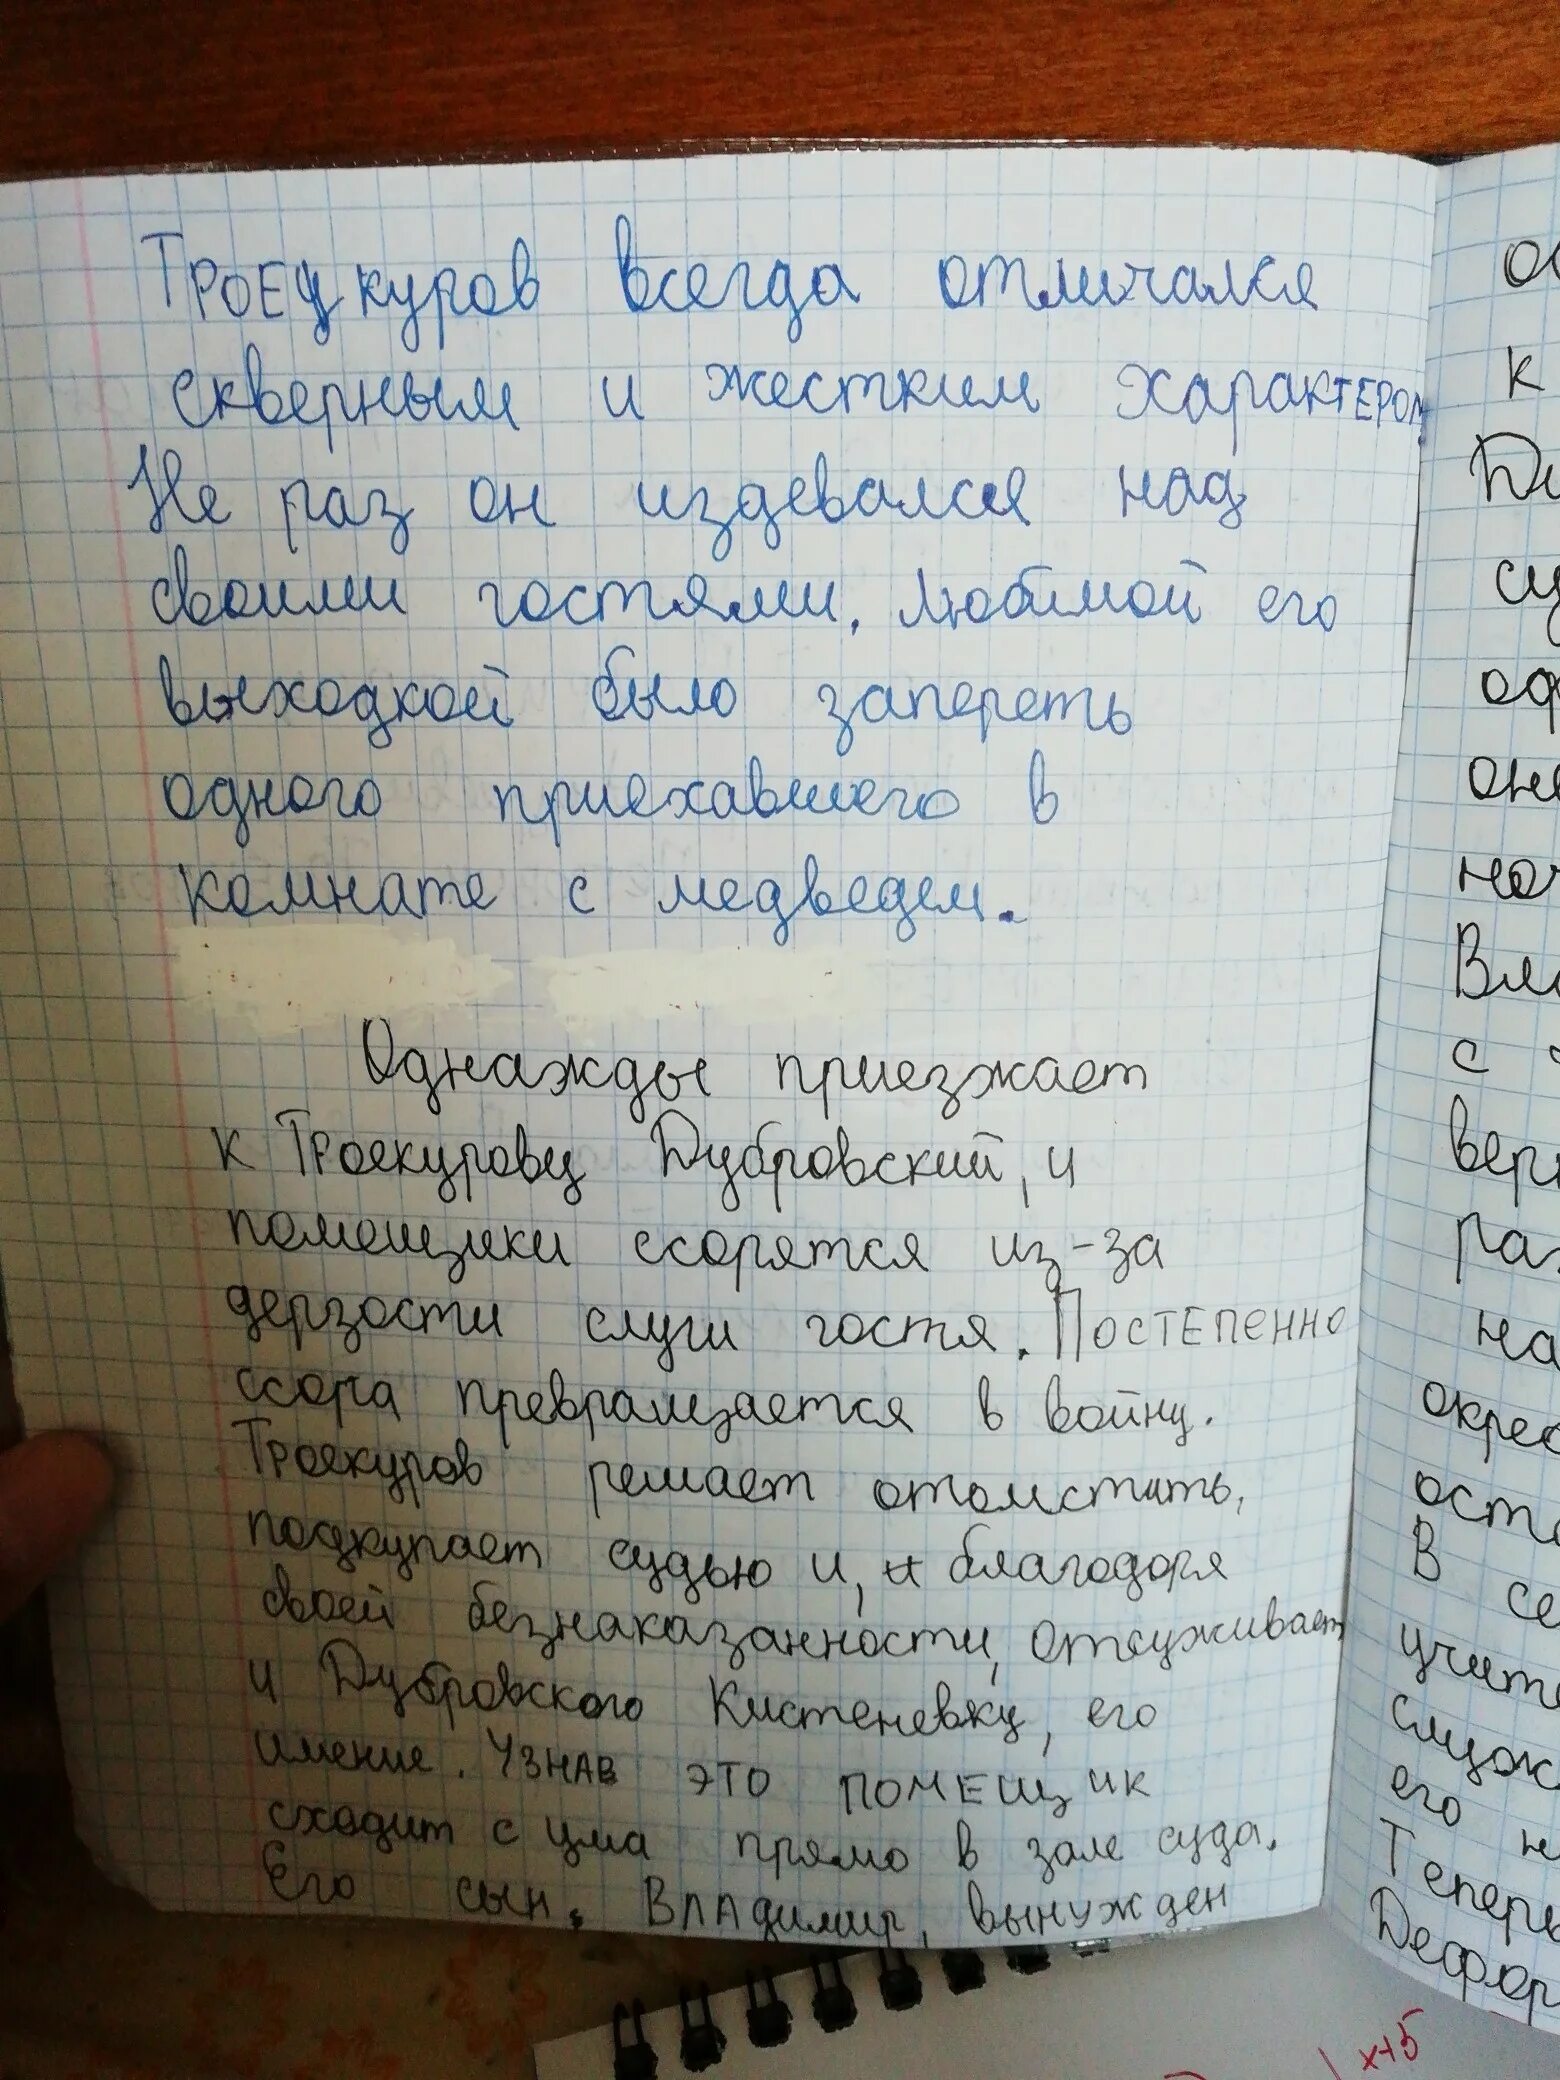 Троецкуров всегда отличался
скверным и жестким характером
Не раз он издевался над
своими гостями. Любимой его
выходкой было запереть
одного приехавшего в
комнате с медведем.
Однажды приезжает
к Троекурову Дубровский, и
помещики ссорятся из-за
дерзости слуги гостя. Постепенно
ссора превращается в войну.
Троекуров решает отомстить,
подкупает судью и, и благодоря
своей безнаказанности, отсуживает
и Дубровского Кистеневку, его
имение. Узнав это помещик
сходит с ума прямо в зале суда.
Его сын, Владимир, вынужден
к
с
В
его
Теперь
x+5